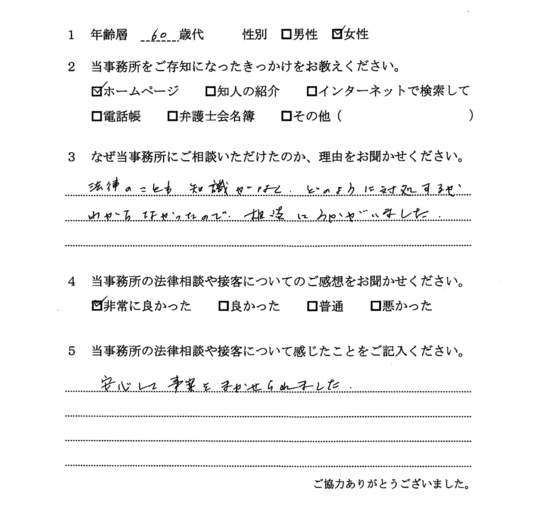 1 年齢層 60 歳代 性別 □男性 ☑女性
2 当事務所をご存知になったきっかけをお教えください。
☑ホームページ □知人の紹介 □インターネットで検索して
□電話帳 □弁護士会名簿 □その他（ ）
3 なぜ当事務所にご相談いただけたのか、理由をお聞かせください。
法律のことも 知識がなく、どのように対処するか
わからなかったので、相談にうかがいました。
4 当事務所の法律相談や接客についてのご感想をお聞かせください。
☑非常に良かった □良かった □普通 □悪かった
5 当事務所の法律相談や接客について感じたことをご記入ください。
安心して 事案を まかせられました。
ご協力ありがとうございました。